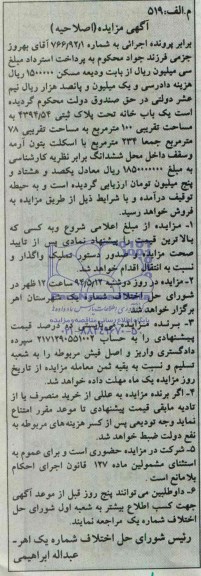 م.الف:۵۱۹
آگهی مزایده(اصلاحیه)
برابر پرونده اجرائی به شماره ۷۶۶/۹۲/۱ آقای بهروز
جزمی فرزند جواد محکوم به پرداخت استرداد مبلغ
سی میلیون ریال از بابت ودیعه مسکن ۱۵۰۰۰۰۰ ریال
هزینه دادرسی و یک میلیون و پانصد هزار ریال نیم
عشر دولتی در حق صندوق دولت محکوم گردیده
است یک باب خانه تحت پلاک ثبتی ۴۳۹۴/۵۴ به
مساحت تقریبی ۱۰۰ مترمربع به مساحت تقریبی ۷۸
مترمربع جمعا ۲۳۴ مترمربع با اسکلت بتون آرمه
وسقف داخل محل ششدانگ برابر نظریه کارشناسی
به مبلغ ۱۸۵۰۰۰۰۰۰۰ ریال معادل یکصد و هشتاد و
پنج میلیون تومان ارزیابی گردیده است و به حیطه
توقیف درآمده و با شرایط ذیل از طریق مزایده به
فروش خواهد رسید.
۱- مزایده از مبلغ اعلامی شروع وبه کسی که
بالاترین قیمت را پیشنهاد نمادی پس از تایید
صحت مزایده و صدور دستور تملیک واگذار و
نسبت به انتقال اقدام خواهد شد.
۲-مزایده در روز دوشنبه ۹۴/۵/۱۲ ساعت ۱۲ ظهر در
شورای حل اختلاف شماره یک شهرستان اهر
برگزار خواهد شد.
۳- برنده مزایده می بایستی ده درصد قیمت
پیشنهادی را به حساب ۲۱۷۱۲۹۰۵۵۱۰۰۲ سپرده
دادگستری واریز و اصل فیش مربوطه را به شعبه
تسلیم و نسبت به بقیه ثمن معامله مزایده از تاریخ
روز مزایده یک ماه مهلت داده خواهد شد.
۴- اگر برنده مزایده به عللی از خرید منصرف یا از
تادیه مابقی قیمت پیشنهادی تا موعد مقرر امتناع
نماید وجه تودیعی پس از کسر هزینه های مربوطه به
نفع دولت ضبط خواهد شد.
۵- شرکت در مزایده حضوری است و برای عموم به
استثنای مشمولین ماده ۱۲۷ قانون اجرای احکام
بلامانع است.
۶- داوطلبین می توانند پنج روز قبل از موعد آگهی
جهت کسب اطلاع بیشتر به شعبه اول شورای حل
اختلاف شماره یک مراجعه نمایند.
رئیس شورای حل اختلاف شماره یک اهر-
عبداله ابراهیمی